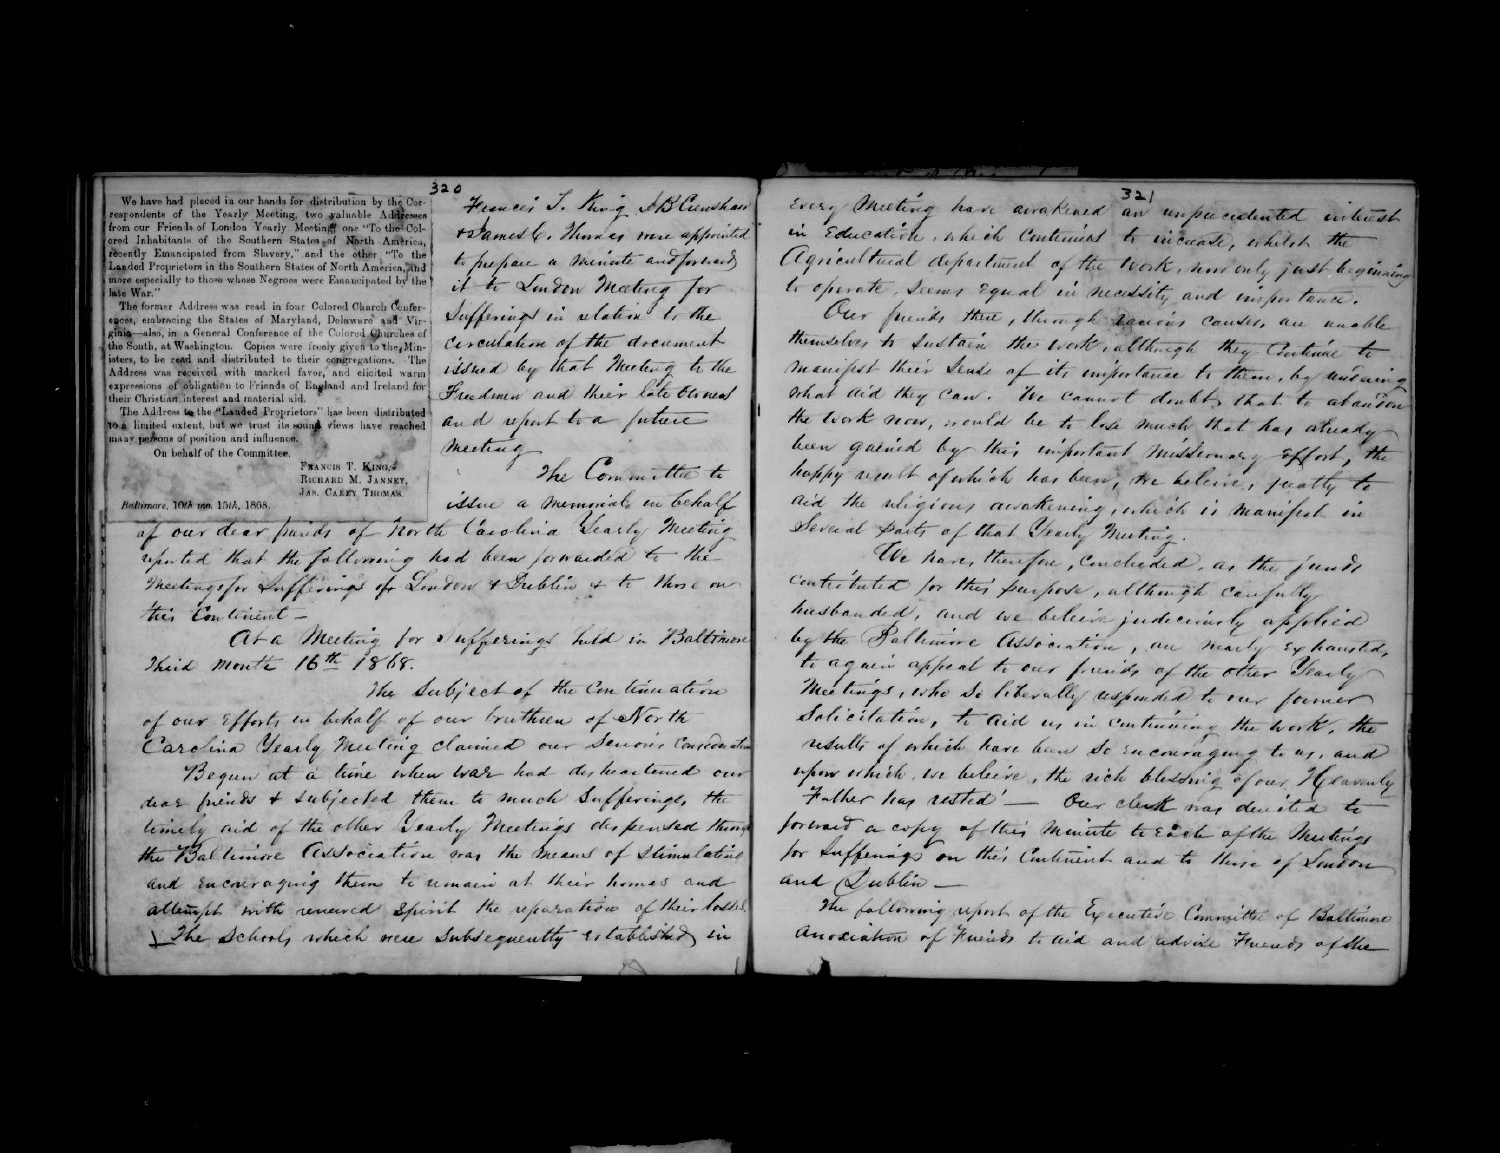 320
We have had placed in our hands for distribution by the Cor-
respondents of the Yearly Meeting, two valuable Addresses
from our Friends of London Yearly Meeting; one "To the Col-
ored Inhabitants of the Southern States of North America,
recently Emancipated from Slavery," and the other "To the
Landed Proprietors in the Southern States of North America, and
more especially to those whose Negroes were Emancipated by the
late War."
The former Address was read in four Colored Church Confer-
ences, embracing the States of Maryland, Delaware and Vir-
ginia—also, in a General Conference of the Colored Churches of
the South, at Washington. Copies were freely given to the Min-
isters, to be read and distributed to their congregations. The
Address was received with marked favor, and elicited warm
expressions of obligation to Friends of England and Ireland for
their Christian interest and material aid.
The Address to the "Landed Proprietors" has been distributed
to a limited extent, but we trust its sound views have reached
many persons of position and influence.
On behalf of the Committee,
FRANCIS T. KING,
RICHARD M. JANNEY,
JAS. CAREY THOMAS.
Baltimore, 10th mo. 15th, 1868.
Francis T. King J B Crenshaw
& James C. Thomas were appointed
to prepare a minute and forward
it to London Meeting for
Sufferings in relation to the
circulation of the document
issued by that Meeting to the
Freedmen and their late owners
and report to a future
meeting
The Committee to
issue a memorial on behalf
of our dear friends of North Carolina Yearly Meeting
reported that the following had been forwarded to the
Meetings for Sufferings of London & Dublin & to those on
this Continent —
At a Meeting for Sufferings held in Baltimore
Third month 16th 1868.
The subject of the Continuation
of our efforts in behalf of our brethren of North
Carolina Yearly Meeting claimed our serious consideration
Begun at a time when war had disheartened our
dear friends & subjected them to much suffering, the
timely aid of the other Yearly Meetings dispensed through
the Baltimore Association was the means of stimulating
and encouraging them to remain at their homes and
attempt with renewed spirit the reparation of their losses.
The Schools which were subsequently established in
321
every Meeting have awakened an unprecedented interest
in Education, which continues to increase, whilst the
Agricultural department of the work, now only just beginning
to operate, seems equal in necessity and importance.
Our friends there, through various causes, are unable
themselves to sustain the work, although they continue to
manifest their sense of its importance to them, by
what aid they can. We cannot doubt that to abandon
the work now, would be to lose much that has already
been gained by this important Missionary effort, the
happy result of which has been, we beleive, greatly to
aid the religious awakening, which is manifest in
several parts of that Yearly Meeting.
We have, therefore, concluded, as the funds
contributed for this purpose, although carefully
husbanded, and we beleive judiciously applied
by the Baltimore Association, are nearly exhausted,
to again appeal to our friends of the other Yearly
Meetings, who so liberally responded to our former
solicitation, to aid us in continuing the work, the
results of which have been so encouraging to us, and
upon which, we beleive, the rich blessing of our Heavenly
Father has rested' — Our clerk was directed to
forward a copy of this minute to each of the Meetings
for Sufferings on this Continent and to those of London
and Dublin —
The following report of the Executive Committee of Baltimore
Association of Friends to aid and advise Friends of the